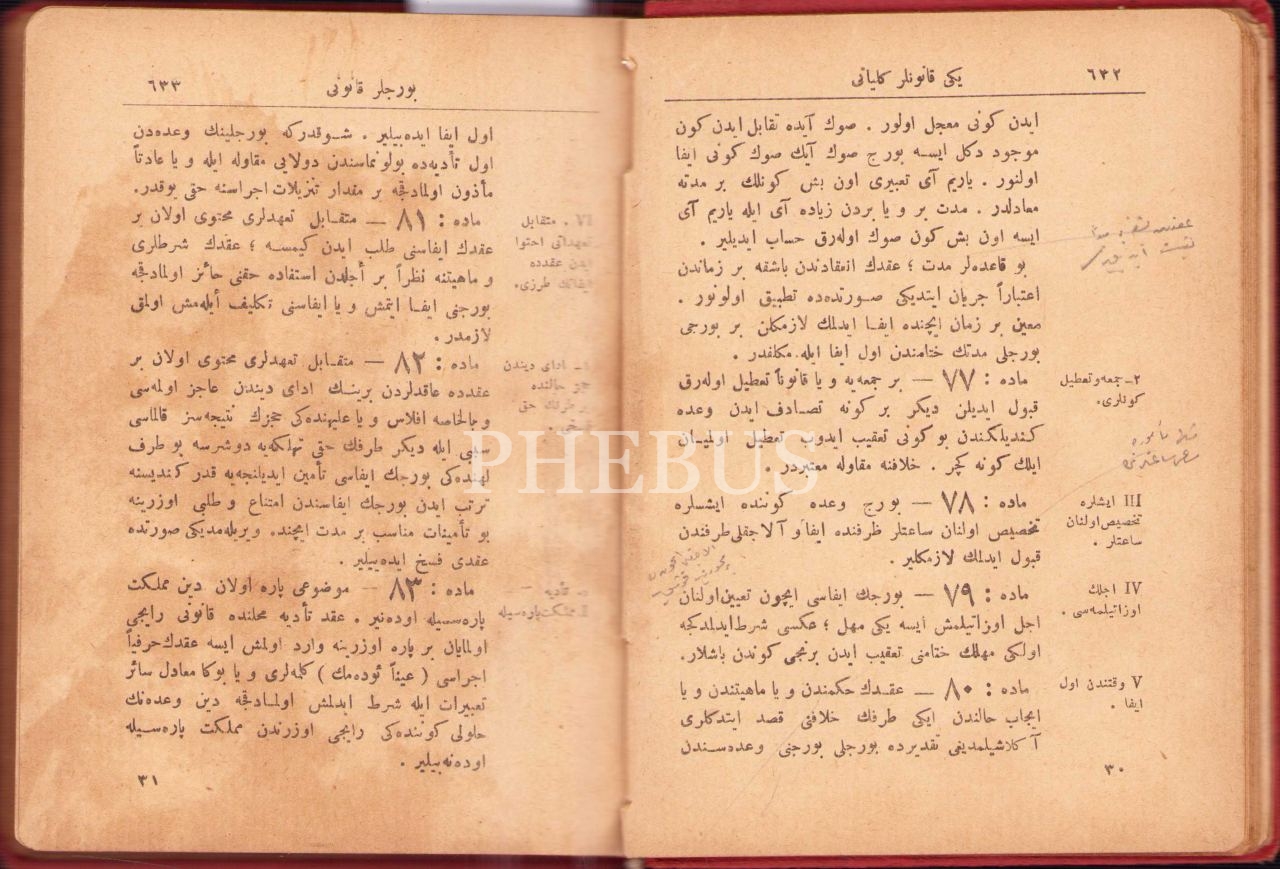 ٦٣٢
يكی قانونلر كلیاتی
ایدن كونی معجل اولور . صوك آیده تقابل ایدن كون
موجود دكل ایسه بورج صوك آیك صوك كونی ایفا
اولنور . یاریم آی تعبیری اون بش كونلك بر مدته
معادلدر . مدت بر و یا بردن زیاده آی ایله یاریم آی
ایسه اون بش كون صوك اوله‌رق حساب ایدیلیر .
بو قاعده‌لر مدت ؛ عقدك انعقادندن باشقه بر زماندن
اعتباراً جریان ایتدیكی صورتده‌ده تطبیق اولونور .
معین بر زمان ایچنده ایفا ایدلمك لازمكلن بر بورجی
بورجلی مدتك ختامندن اول ایفا ایله مكلفدر .
٢ـ جمعه و تعطیل
كونلری .
ماده : ٧٧ — بر جمعه‌یه و یا قانوناً تعطیل اوله‌رق
قبول ایدیلن دیكر بر كونه تصادف ایدن وعده
كندیلكندن بو كونی تعقیب ایدوب تعطیل اولمیان
ایلك كونه كچر . خلافنه مقاوله معتبردر .
III ایشلره
تخصیص اولنان
ساعتلر .
ماده : ٧٨ — بورج وعده كوننده ایشلره
تخصیص اولنان ساعتلر ظرفنده ایفا و آلاجقلی طرفندن
قبول ایدلمك لازمكلیر .
IV اجلك
اوزاتیلمه‌سی .
ماده : ٧٩ — بورجك ایفاسی ایچون تعیین اولنان
اجل اوزاتیلمش ایسه یكی مهل ؛ عكسی شرط ایدلمدكجه
اولكی مهلك ختامنی تعقیب ایدن برنجی كوندن باشلار .
V وقتندن اول
ایفا .
ماده : ٨٠ — عقدك حكمندن و یا ماهیتندن و یا
ایجاب حالندن ایكی طرفك خلافنی قصد ایتدكلری
آكلاشیلمدیغی تقدیرده بورجلی بورجنی وعده‌سندن
٣٠
بورجلر قانونی
٦٣٣
اول ایفا ایده‌بیلیر . شوقدركه بورجلینك وعده‌دن
اول تأدیه‌ده بولونماسندن دولایی مقاوله ایله و یا عادتاً
مأذون اولمادقجه بر مقدار تنزیلات اجراسنه حقی یوقدر.
VI . متقابل
تعهداتی احتوا
ایدن عقدده
ایفانك طرزی.
ماده : ٨١ — متقابل تعهدلری محتوی اولان بر
عقدك ایفاسنی طلب ایدن كیمسه ؛ عقدك شرطلری
و ماهیتنه نظراً بر أجلدن استفاده حقنی حائز اولمادقجه
بورجنی ایفا ایتمش و یا ایفاسنی تكلیف أیله‌مش اولمق
لازمدر .
ماده : ٨٢ — متقابل تعهدلری محتوی اولان بر
عقدده عاقدلردن برینك ادای دیندن عاجز اولمه‌سی
و بالخاصه افلاس و یا علیهنده‌كی حجزك نتیجه‌سز قالماسی
سببی ایله دیكر طرفك حقی تهلكه‌یه دوشرسه بو طرف
لهنده‌كی بورجك ایفاسی تأمین ایدیلنجه‌یه قدر كندیسنه
ترتب ایدن بورجك ایفاسندن امتناع و طلبی اوزرینه
بو تأمینات مناسب بر مدت ایچنده ویریله‌مدیكی صورتده
عقدی فسخ ایده‌بیلیر .
ماده : ٨٣ — موضوعی پاره اولان دین مملكت
پاره‌سیله اوده‌نیر . عقد تأدیه محلنده قانونی رایجی
اولمایان بر پاره اوزرینه وارد اولمش ایسه عقدك حرفیاً
اجراسی ( عیناً ئوده‌مك ) كلمه‌لری و یا بوكا معادل سائر
تعبیرات ایله شرط ایدلمش اولمادقجه دین وعده‌نك
حلولی كوننده‌كی رایجی اوزرندن مملكت پاره‌سیله
اوده‌نه‌بیلیر .
٣١
PHEBUS